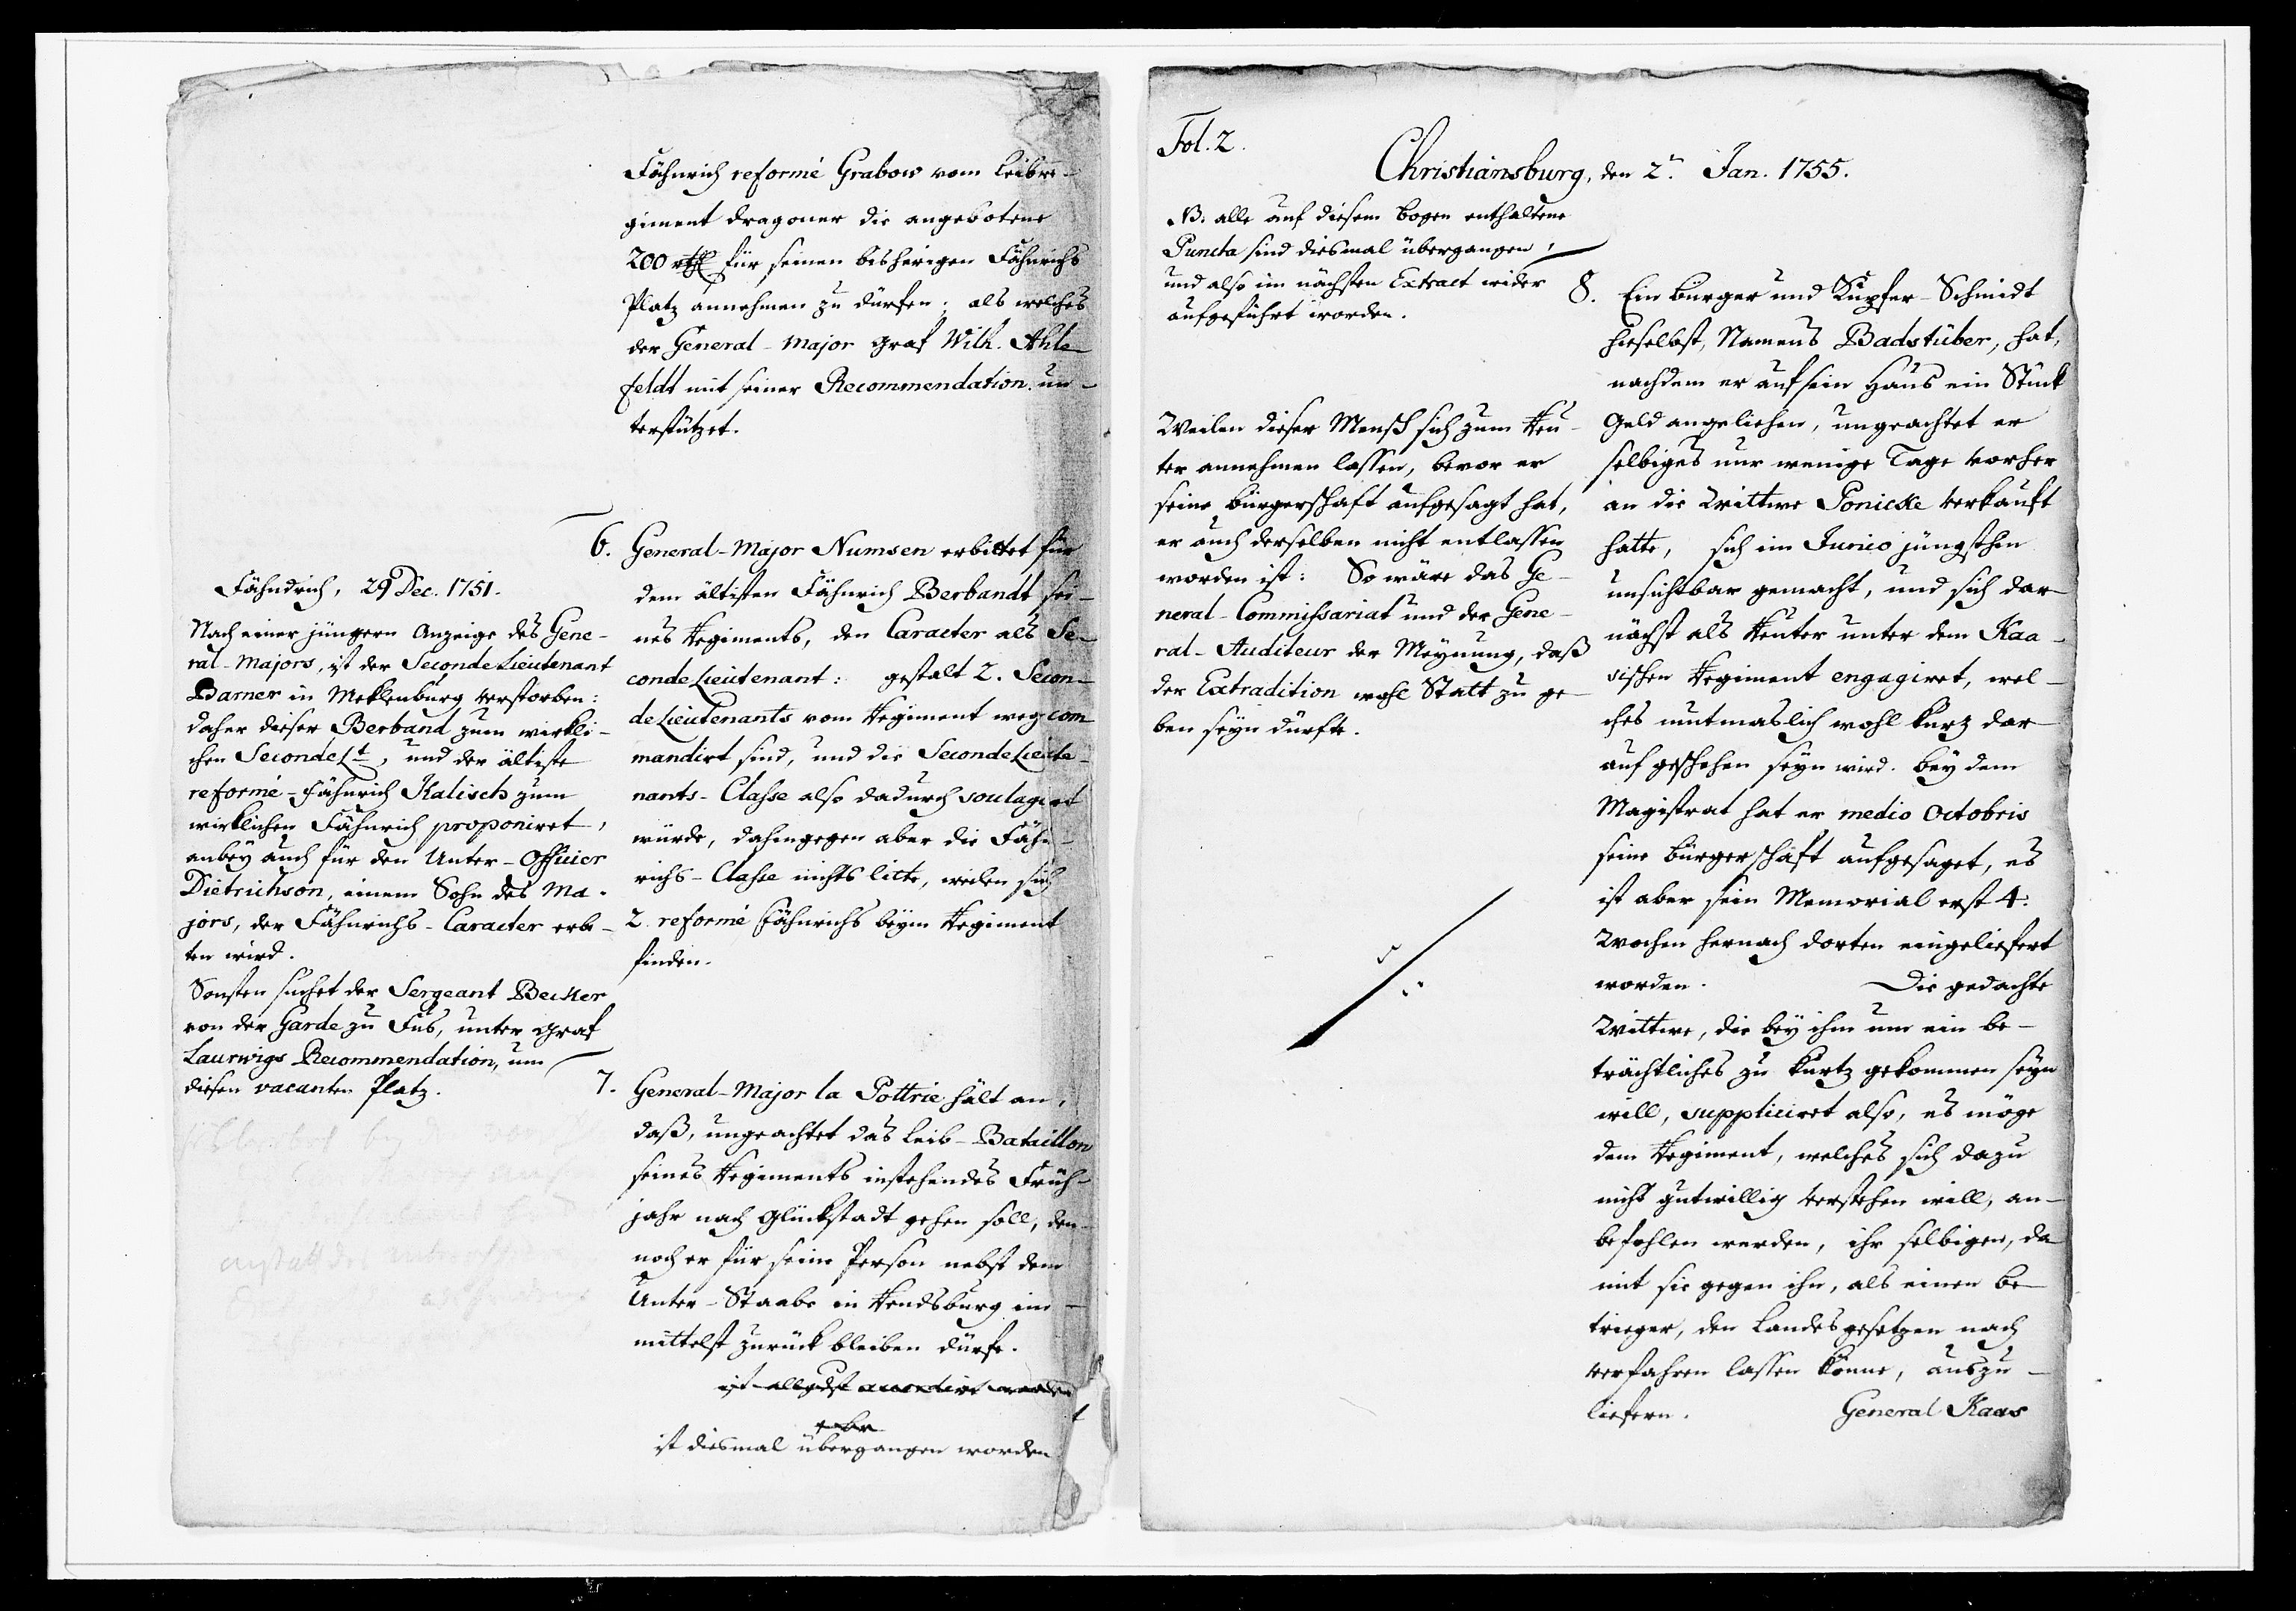 Fähnrich reformé Grabow vom Leibre-
giment dragoner die angebotene
200 rthl für seinen bisherigen Fähnrichs
Platz annehmen zu dürfen; als welches
der General-Major Graf Wilh. Ahle-
feldt mit seiner Recommendation un-
terstützet.
6. General-Major Numsen erbittet für
dem ältisten Fähnrich Berbandt sei-
nes Regiments, den Caracter als Se-
conde Lieutenant: gestalt 2. Secon-
de Lieutenants vom Regiment weg com
mandirt sind, und die Seconde Lieute-
nants-Classe also dadurch soulagiret
würde, dahingegen aber die Fähn-
richs-Classe nichts litte, weilen sich
2. reformé Fähnrichs beym Regiment
finden.
Fähndrich, 29 Dec. 1751.
Nach einer jüngern Anzeige des Gene-
ral-Majors, ist der Seconde Lieutenant
Barner in Meklenburg verstorben:
daher dieser Berband zum wirkli-
chen Seconde Lt, und der ältiste
reformé-Fähnrich Kalisch zum
wirklichen Fähnrich proponiret,
anbey auch für den Unter-Officier
Dietrichson, einem Sohn des Ma-
jors, der Fähnrichs-Caracter erbe-
ten wird.
Sonsten suchet der Sergeant Becker
von der Garde zu Fus, unter Graf
Laurwigs Recommendation, um
diesen vacanten Platz.
7. General-Major la Pottrie hält an,
daß, ungeachtet das Leib-Bataillon
seines Regiments instehendes Früh-
jahr nach Glückstadt gehen soll, den-
noch er für seine Person nebst dem
Unter-Staabe in Rendsburg im-
mittelst zurück bleiben dürfe.
ist allgdst accordirt worden
ist diesmal übergangen worden
Fol. 2.
Christiansburg, den 2n Jan. 1755.
NB. alle auf diesem Bogen enthaltene
Puncta sind diesmal übergangen,
und also im nächsten Extract wider
aufgeführt worden.
Weilen dieser Mensch sich zum Reu-
ter annehmen lassen, bevor er
seine Bürgerschaft aufgesagt hat,
er auch derselben nicht entlassen
worden ist: So wäre das Ge-
neral-Commissariat und der Gene-
ral-Auditeur der Meynung, daß
der Extradition wohl Statt zu ge-
ben seyn dürfte.
8. Ein Burger und Kupfer-Schmidt
hieselbst, Namens Badstüber, hat,
nachdem er auf sein Haus ein Stück
Geld angeliehen, ungeachtet er
selbiges nur wenige Tage vorher
an die Wittwe Ponicke verkauft
hatte, sich im Junio jüngsthin
unsichtbar gemacht, und sich dar-
nächst als Reuter unter dem Kaa-
sischen Regiment engagiret, wel-
ches mutmaslich wohl kurz dar-
auf geschehen seyn wird. Bey dem
Magistrat hat er medio Octobris
seine Bürgerschaft aufgesaget, es
ist aber sein Memorial erst 4.
Wochen hernach dorten eingeliefert
worden. Die gedachte
Wittwe, die bey ihm um ein be-
trächtliches zu kurtz gekommen seyn
will, suppliciret also, es möge
dem Regiment, welches sich dazu
nicht gutwillig verstehen will, an-
befohlen werden, ihr selbigen, da
mit sie gegen ihn, als einen Be-
trieger, den Landesgesetzen nach
verfahren lassen könne, auszu-
liefern. General Kaas